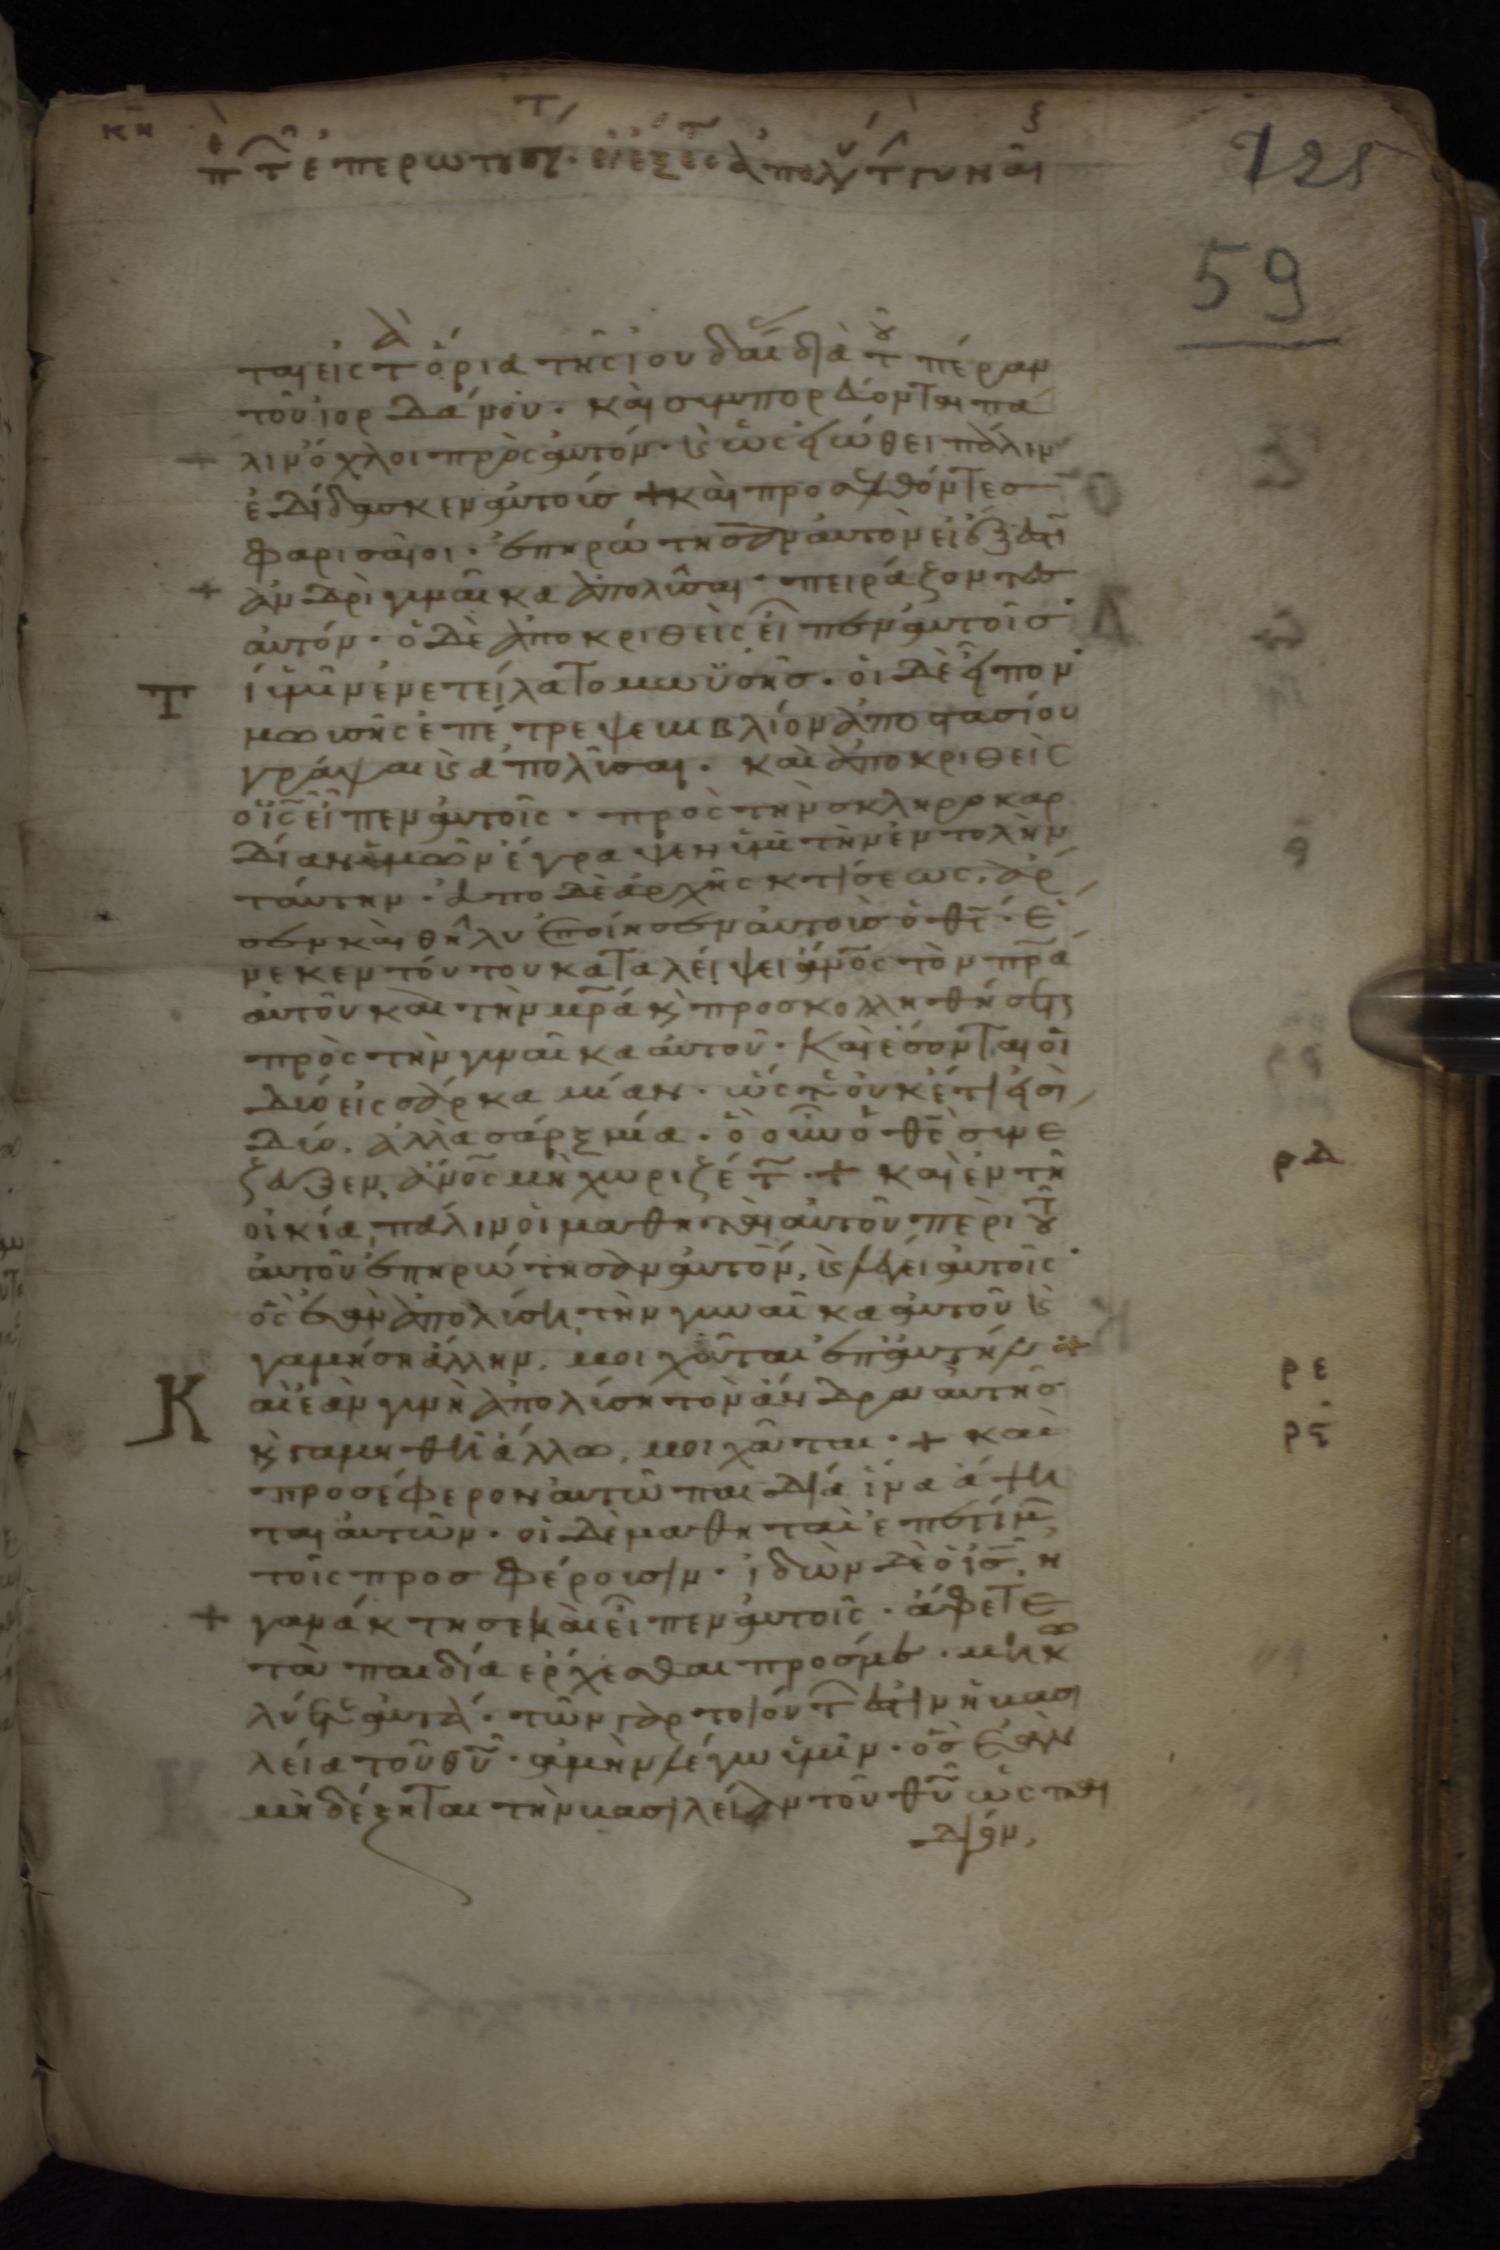 κη
125
59
ται εἰς τὰ ὅρια τῆς ἰουδαί διὰ τοῦ πέραν
τοῦ ἰορδάνου. καὶ συμπορεύονται πά
λιν ὄχλοι πρὸς αὐτόν. κ ὡς εἰώθει πάλιν
ἐδίδασκεν αὐτοίσ + καὶ προσελθόντεσ
φαρισαίοι. ἐπηρώτησαν αὐτὸν εἰ ἔξεστι
+ ἀνδρὶ γυναῖκα ἀπολῦσαι. πειράζοντεσ
αὐτόν. ὁ δὲ ἀποκριθεὶς εἶπεν αὐτοῖσ.
Τ ί ὑμῖν ἐνετείλατο μωϋσῆσ. οἱ δὲ εἶπον.
μωυσῆς ἐπέτρεψε βιβλίον ἀποστασίου
γράψαι κ ἀπολῦσαι. καὶ ἀποκριθεὶς
ὁ ις εἶπεν αὐτοῖς. πρὸς τὴν σκληροκαρ
δίαν ὑμῶν ἔγραψεν ὑμῖν τὴν ἐντολὴν
ταύτην. ἀπο δὲ ἀρχῆς κτίσεως. ἄρ
σεν καὶ θῆλυ ἐποίησεν αὐτοὺσ ὁ θς. ἕ
νεκεν τούτου καταλείψει ἄνος τὸν πρα
αὐτοῦ καὶ τὴν μρα κ προσκολληθήσεται
πρὸς τὴν γυναῖκα αὐτοῦ. Καὶ ἔσονται οἱ
δύο εἰς σάρκα μίαν. ὥστε οὐκέτι εἰσὶ
δύο. ἀλλὰ σὰρξ μία. ὃ οὖν ὁ θς συνέ
ζευξεν, ἄνος μὴ χωριζέτω. + Καὶ ἐν τῆ
οἰκία, πάλιν οἱ μαθηταὶ αὐτοῦ περὶ τοῦ
αὐτοῦ ἐπηρώτησαν αὐτόν, κ λέγει αὐτοῖς.
ὃς ἐὰν ἀπολύση τὴν γυναῖκα αὐτοῦ κ
γαμήση ἄλλην, μοιχᾶται ἐπ αὐτήν +
Κ αὶ ἐὰν γυνὴ ἀπολύση τὸν ἄνδρα αὐτῆσ
κ γαμηθῆ ἄλλω, μοιχᾶται. + καὶ
προσέφερον αὐτῶ παιδία ἵνα ἅψη
ται αὐτῶν. οἱ δὲ μαθηταὶ ἐπετίμων
τοῖς προσφέρουσιν. ἰδὼν δὲ ὁ ις, ἠ
+ γανάκτησε καὶ εἶπεν αὐτοῖς. ἄφετε
τὰ παιδία ἔρχεσθαι πρόσ με. μὴ κω
λύετε αὐτά. τῶν γὰρ τοιούτων ἐστὶν ἡ βασι
λεία τοῦ θυ. ἀμὴν λέγω ὑμῖν. ὃς ἐὰν
μὴ δέξηται τὴν βασιλείαν τοῦ θυ ὡς παι
δίον,
ρδ
ρε
ρς